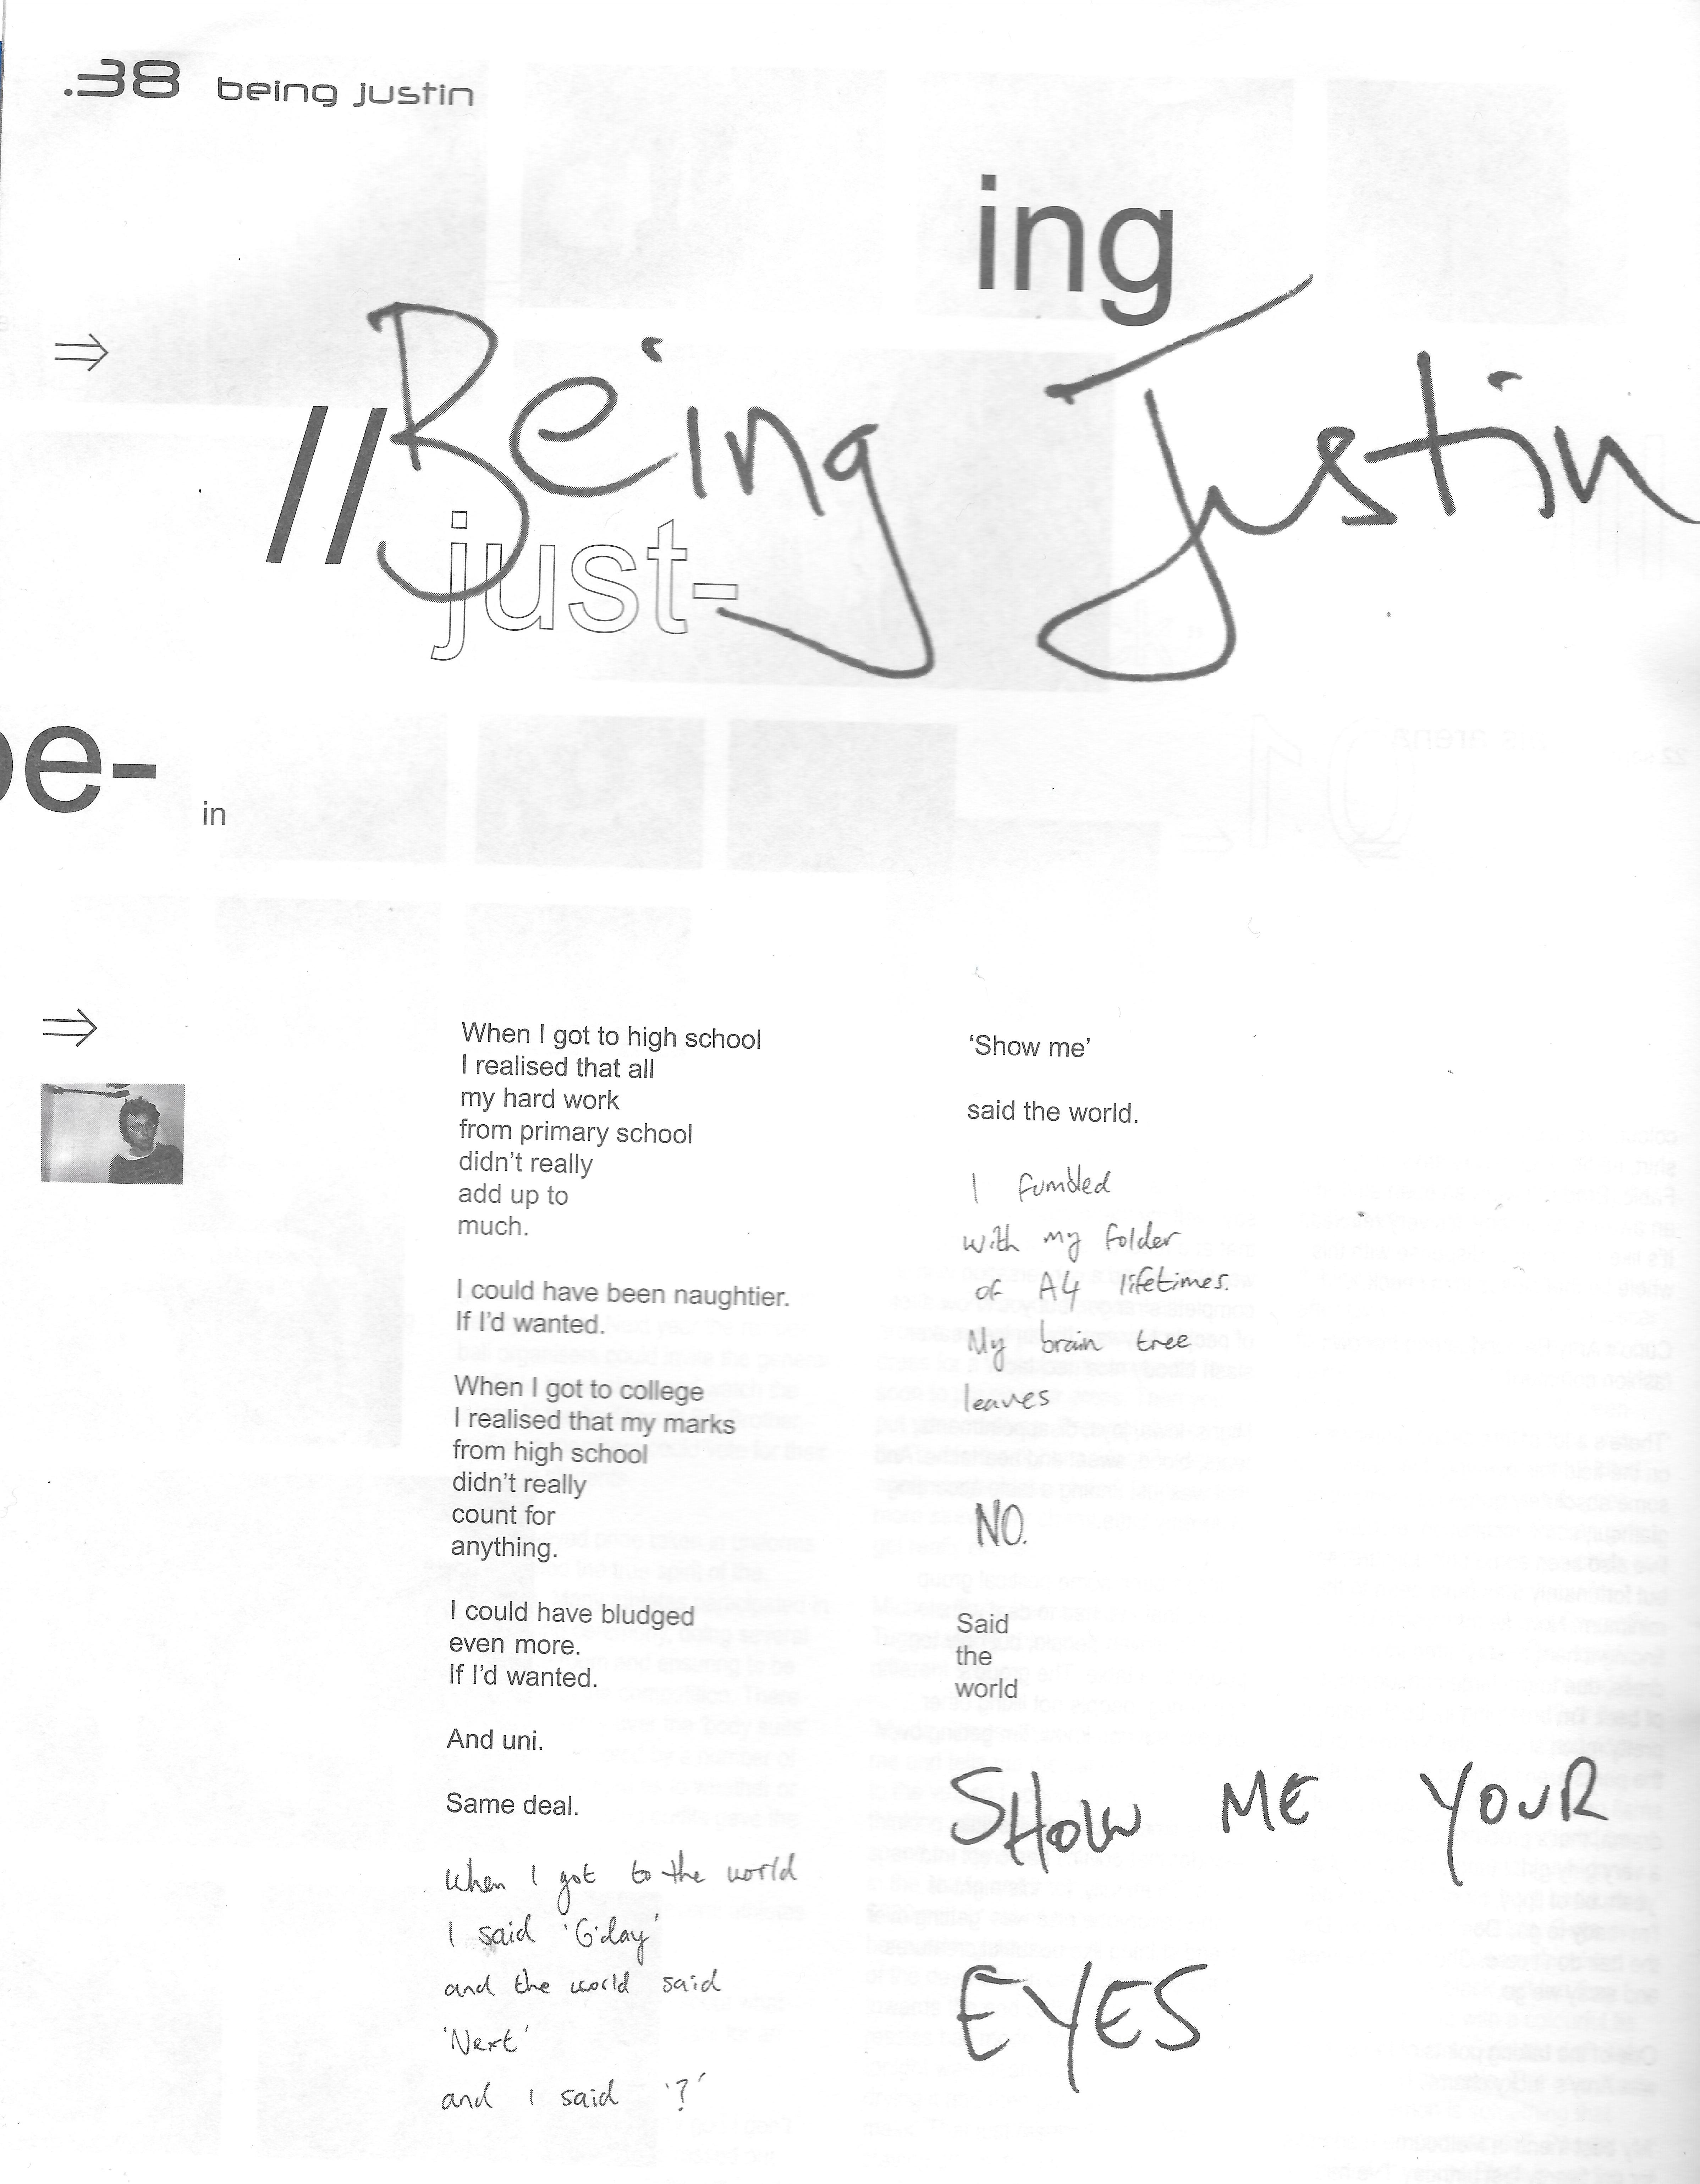 .38 being justin
ing
//Being Justin
just-
be-
in
When I got to high school
I realised that all
my hard work
from primary school
didn't really
add up to
much.
I could have been naughtier.
If I'd wanted.
When I got to college
I realised that my marks
from high school
didn't really
count for
anything.
I could have bludged
even more.
If I'd wanted.
And uni.
Same deal.
When I got to the world
I said 'G'day'
and the world said
'Next'
and I said '?'
‘Show me’
said the world.
I fumbled
with my folder
of A4 lifetimes.
My brain tree
leaves
NO.
Said
the
world
SHOW ME YOUR
EYES